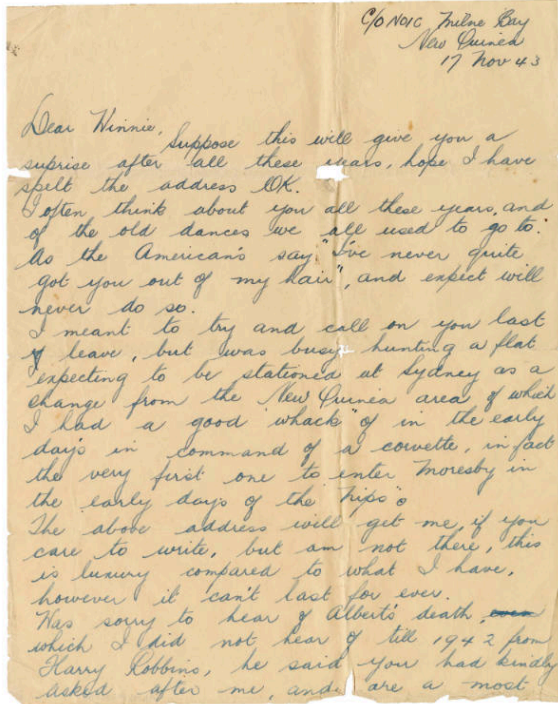 C/O NOIC Milne Bay
New Guinea
17 Nov 43
Dear Winnie,
Suppose this will give you a
suprise after all these years, hope I have
spelt the address OK.
I often think about you all these years, and
of the old dances we all used to go to.
As the American's say "I've never quite
got you out of my hair", and expect will
never do so.
I meant to try and call on you last
leave, but was busy hunting a flat
expecting to be stationed at Sydney as a
change from the New Guinea area of which
I had a good "whack" of in the early
days in command of a corvette, in fact
the very first one to enter Moresby in
the early days of the Nips"
The above address will get me, if you
care to write, but am not there, this
is luxury compared to what I have,
however it can't last for ever.
Was sorry to hear of Albert's death, even
which I did not hear of till 1942 from
Harry Robbins, he said you had kindly
asked after me, and are a most